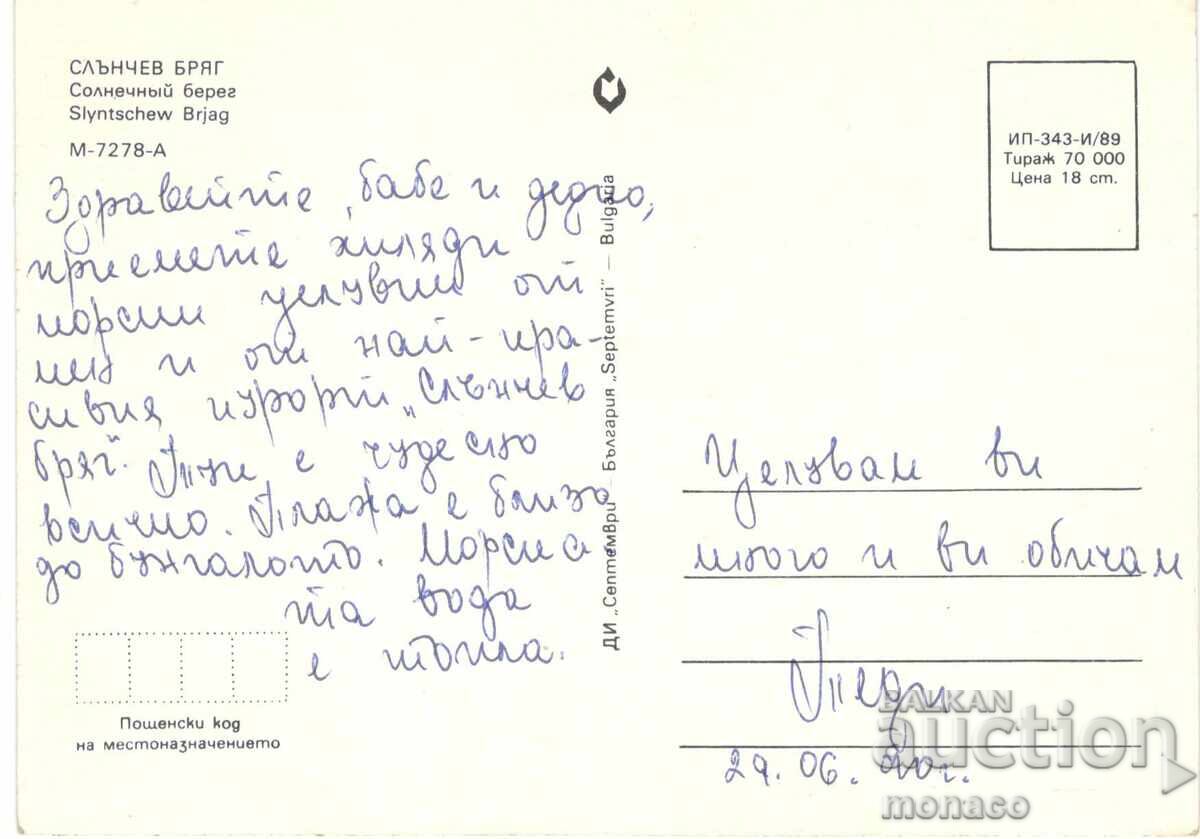 СЛЪНЧЕВ БРЯГ
Солнечный берег
Slyntschew Brjag
М-7278-А
Здравейте, бабе и дедно,
приемете хиляди
морски целувки от
мен и от най-кра-
сивия курорт „Слънчев
бряг". Тук е чудесно
всичко. Плажа е близо
до бунгалото. Морска
та вода
е топла.
Пощенски код
на местоназначението
ДИ „Септември" — България „Septemvri" — Bulgaria
ИП-343-И/89
Тираж 70 000
Цена 18 ст.
Целувам ви
много и ви обичам
Теди
29.06.90г.
BALKAN
auction
monaco